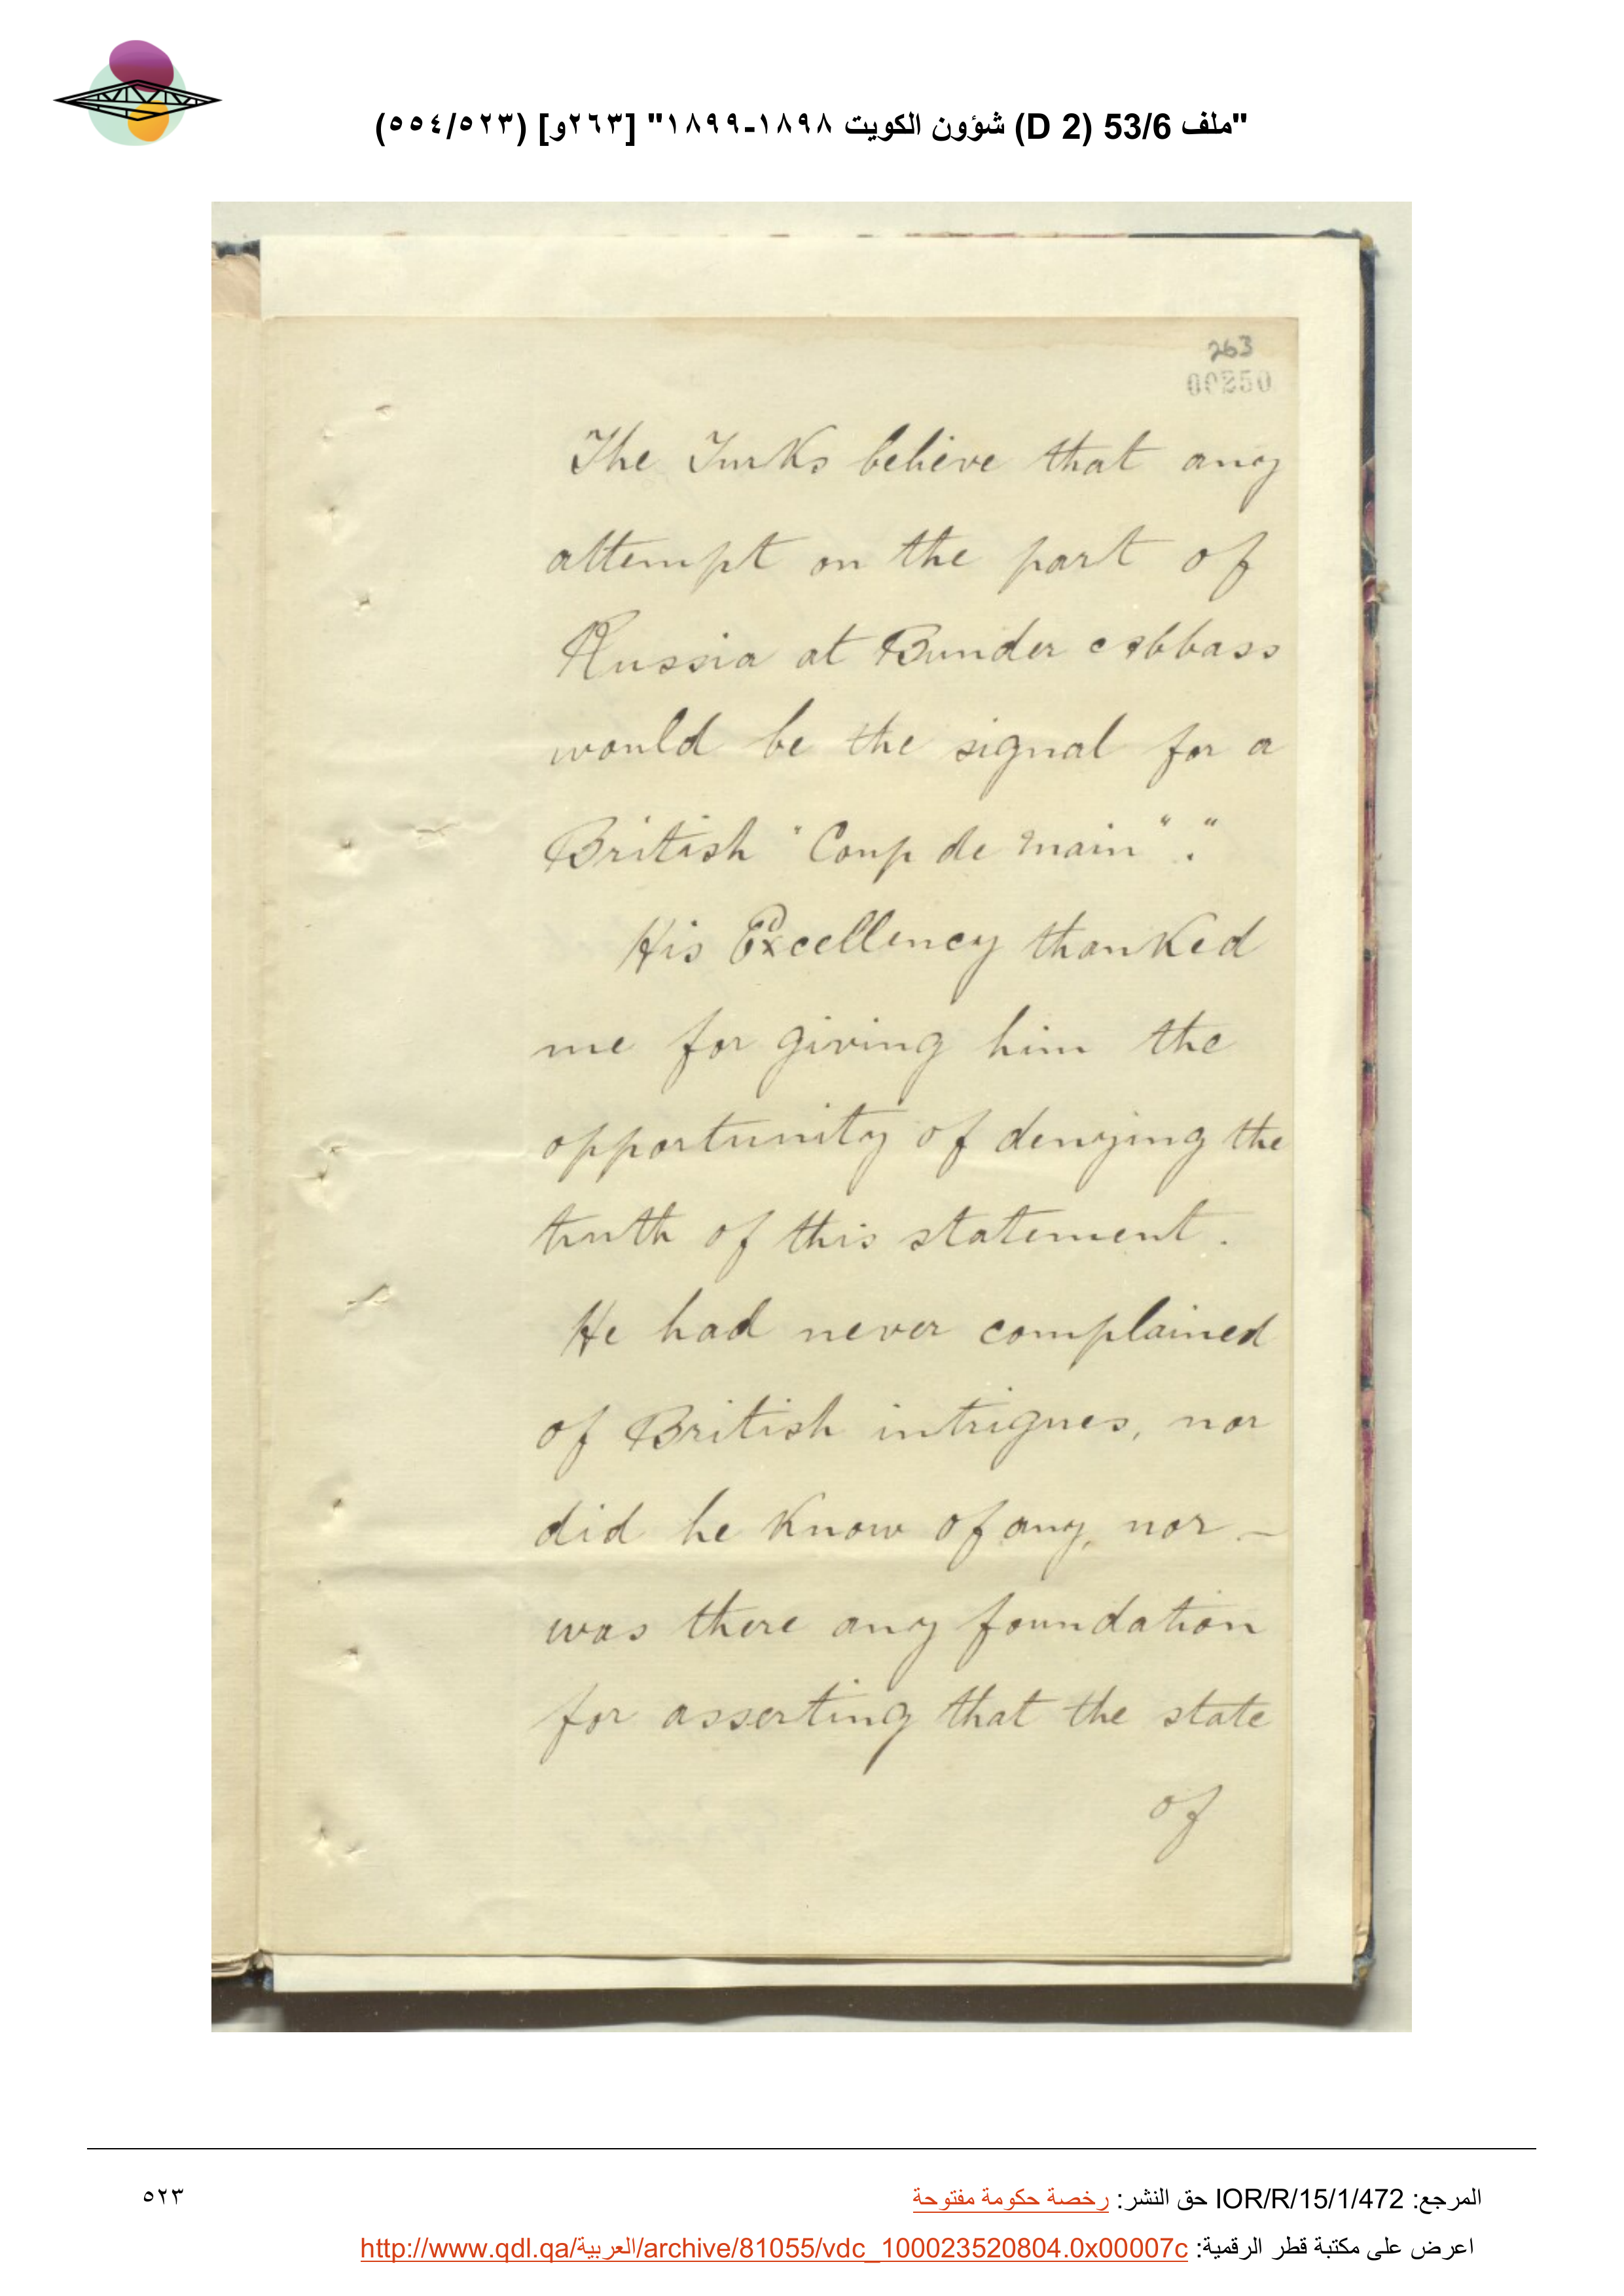 "ملف 53/6 (D 2) شؤون الكويت ١٨٩٨-١٨٩٩" [٢٦٣و] (٥٢٣/٥٥٤)
263
00250
The Turks believe that any
attempt on the part of
Russia at Bunder Abbass
would be the signal for a
British "Coup de main"."
His Excellency thanked
me for giving him the
opportunity of denying the
truth of this statement.
He had never complained
of British intrigues, nor
did he know of any, nor –
was there any foundation
for asserting that the state
of
المرجع: IOR/R/15/1/472 حق النشر: رخصة حكومة مفتوحة
٥٢٣
اعرض على مكتبة قطر الرقمية: http://www.qdl.qa/العربية/archive/81055/vdc_100023520804.0x00007c